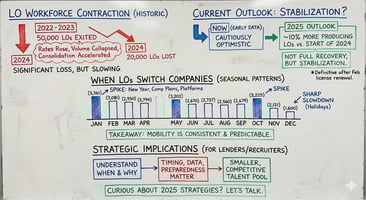 LO WORKFORCE CONTRACTION (HISTORIC)
2022-2023
50,000 LOs EXITED
Rates Rose, Volume Collapsed,
Consolidation Accelerated
2024
2024
20,000 LOs LOST
SIGNIFICANT LOSS, BUT SLOWING.
CURRENT OUTLOOK: STABILIZATION?
NOW (EARLY DATA)
CAUTIOUSLY
OPTIMISTIC
2025 OUTLOOK
~10% MORE PRODUCING
LOs VS. START OF 2024
NOT FULL RECOVERY,
BUT STABILIZATION.
*Definitive after Feb
license renewal.
WHEN LOs SWITCH COMPANIES (SEASONAL PATTERNS)
SPIKE: New Year, Comp Plans, Platforms
SPIKE
SHARP
SLOWDOWN
(Holidays)
JAN FEB MAR APR MAY JUN JUL AUG SEP OCT NOV DEC
TAKEAWAY: MOBILITY IS CONSISTENT & PREDICTABLE.
STRATEGIC IMPLICATIONS (FOR LENDERS/RECRUITERS)
UNDERSTAND
WHEN & WHY
TIMING, DATA,
PREPAREDNESS
MATTER
SMALLER,
COMPETITIVE
TALENT POOL
CURIOUS ABOUT 2025 STRATEGIES? LET'S TALK.